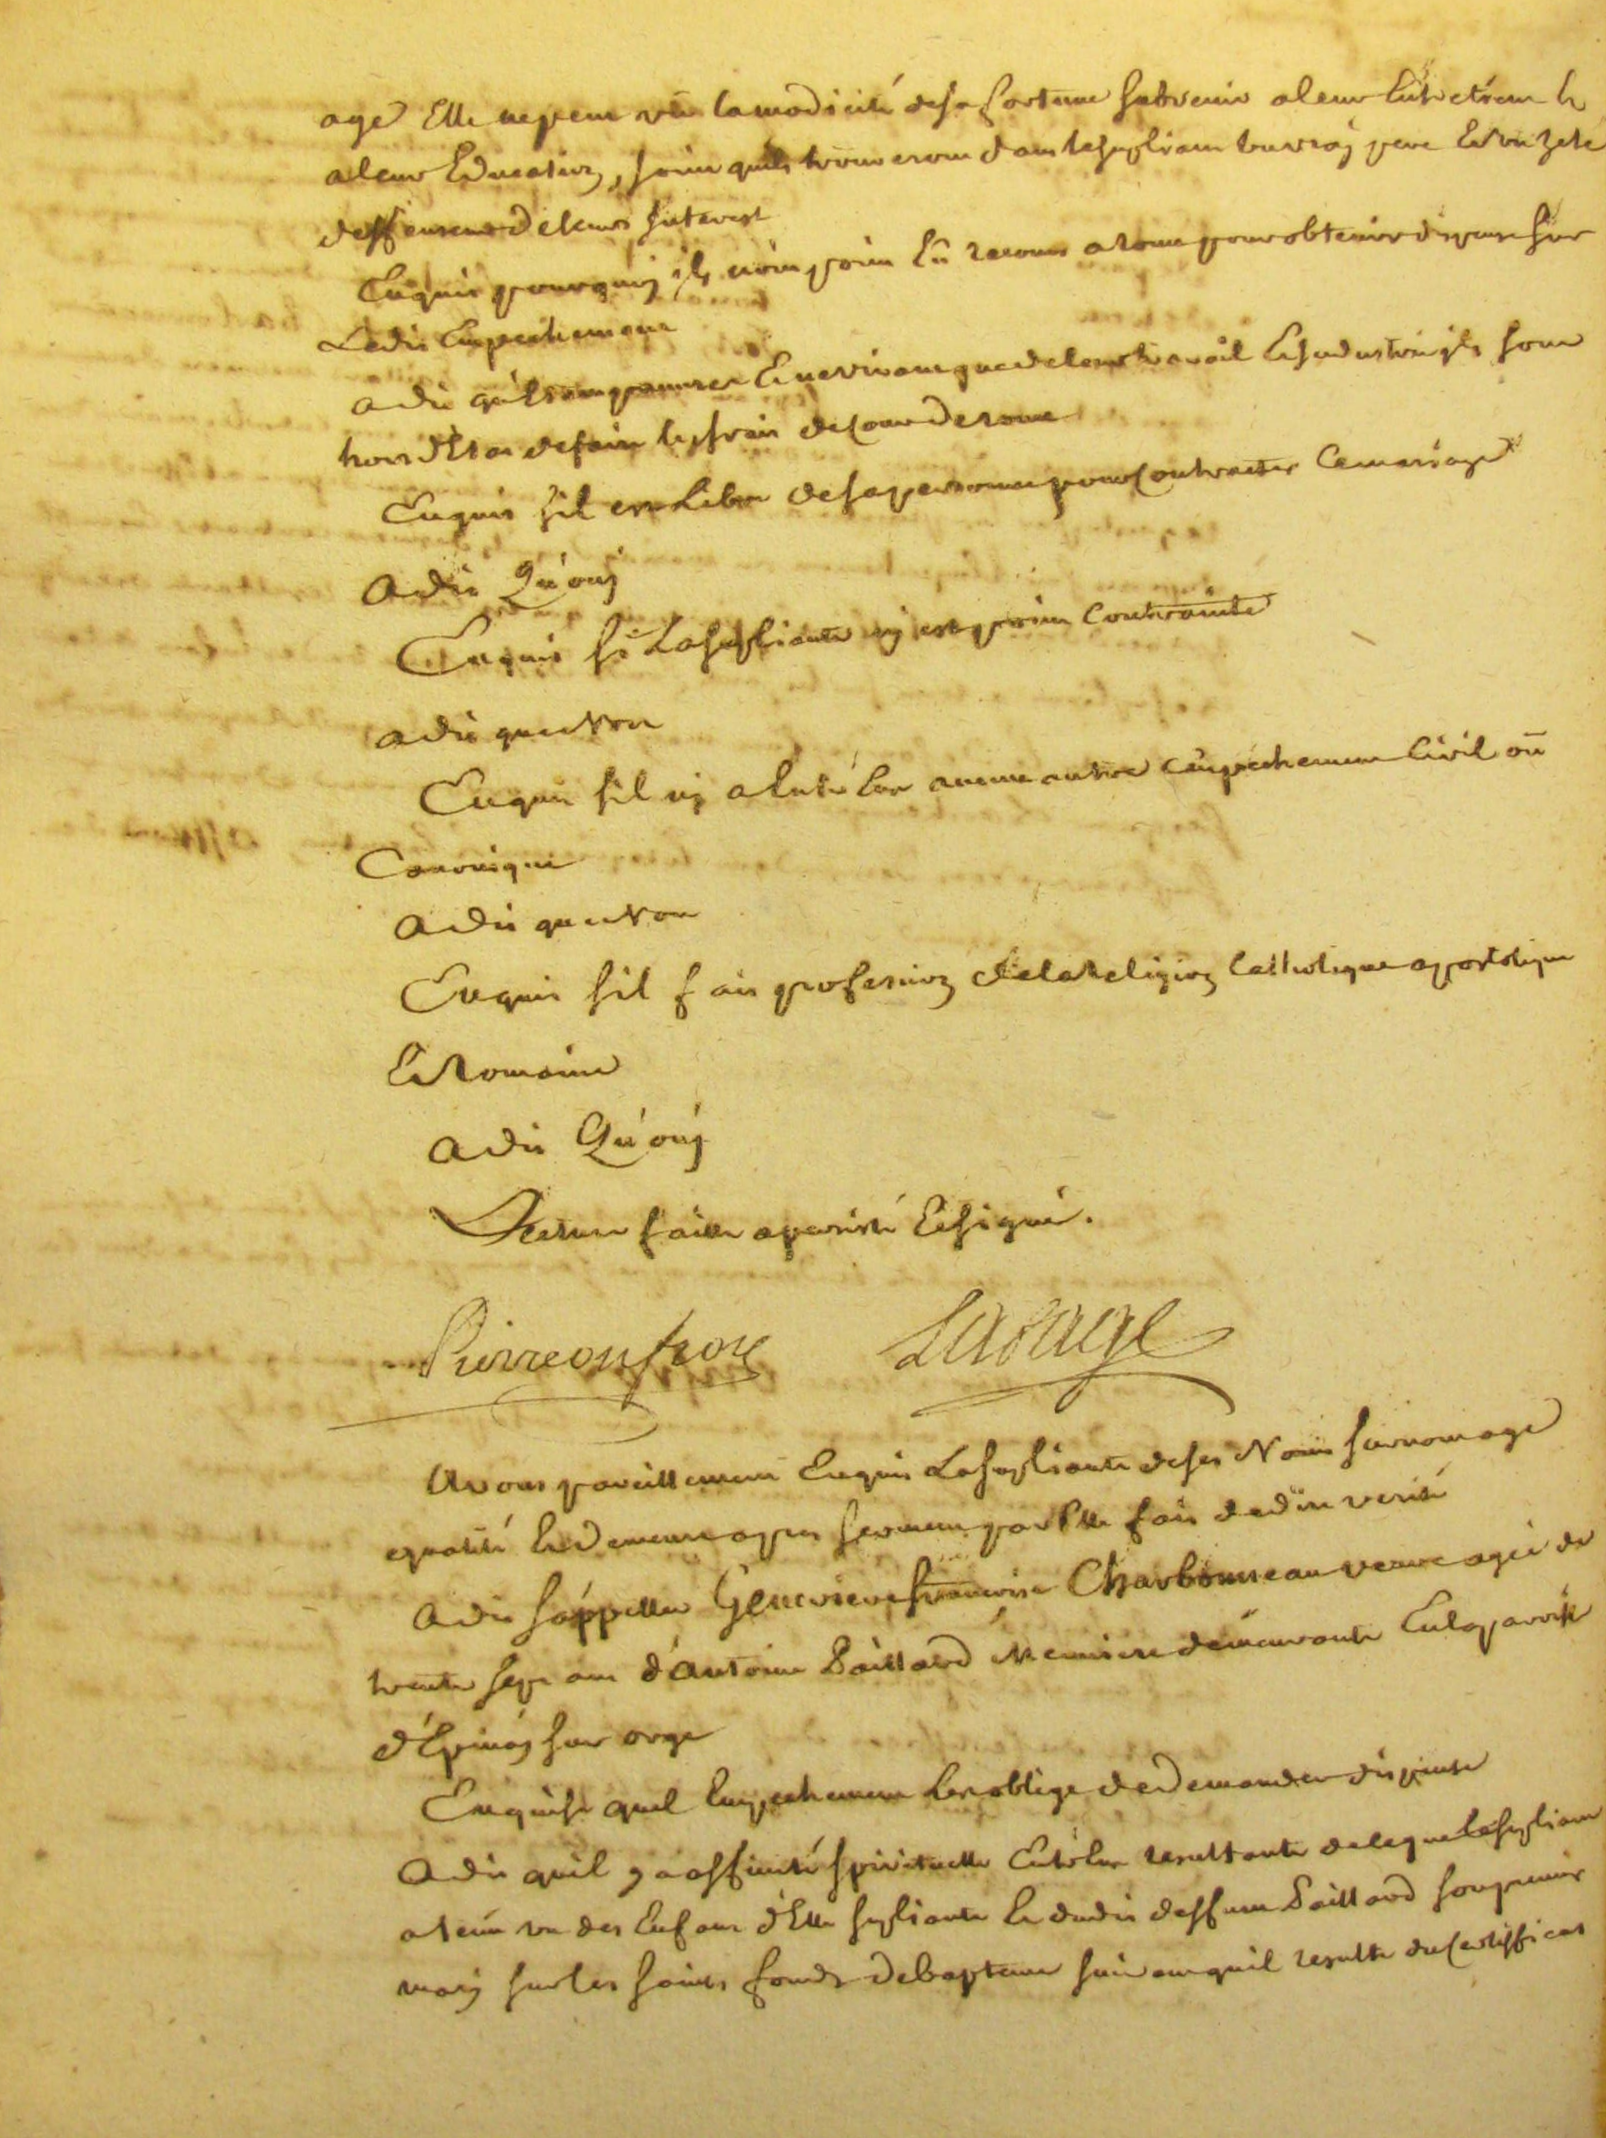 age Elle ne peut vû la modicité de sa fortune subvenir a leur Entretien &
a leur Education, soin quils trouveront dans le supliant un vray pere Et un zelé
deffenseur de leurs Interest
Enquis pourquoy ils n'ont point Eu recours a rome pour obtenir dispense sur
Ledit Empechement
a dit qu'etant pauvres Et ne vivant que de leur travail Et industrie ils sont
hors d'Etat de faire les frais de cour de rome
Enquis s'il est Libre de sa personne pour Contracter Ce mariage
a dit Qu'ouy
Enquis si La supliante n'y est point Contrainte
a dit que Non
Enquis s'il n'y a Entre Eux aucune autre Empechement Civil ou
Canonique
a dit que Non
Enquis s'il fait profession de la Religion Catholique apostolique
Et Romaine
a dit Qu'ouy
Lecture faitte a persisté Et signé.
Pierre onfroy Lesage
Avons pareillement Enquis La supliante de ses Noms surnom age
qualité Et Demeure apres serment par Elle fait de dire verité
a dit s'appeller Genevieve francoise Charbonneau veuve agée de
trente sept ans d'Antoine Paillard Meuniere demeurante En la paroisse
d'Epinay sur orge
Enquise quel Empechement Les oblige de Demander dispense
a dit quil y a affinité spirituelle Entr'Eux resultante de ce que Le supliant
a tenu un des Enfans d'Elle supliante Et dudit deffunt Paillard son premier
mary sur les saints fonds de bapteme suivant quil resulte du Certifficat